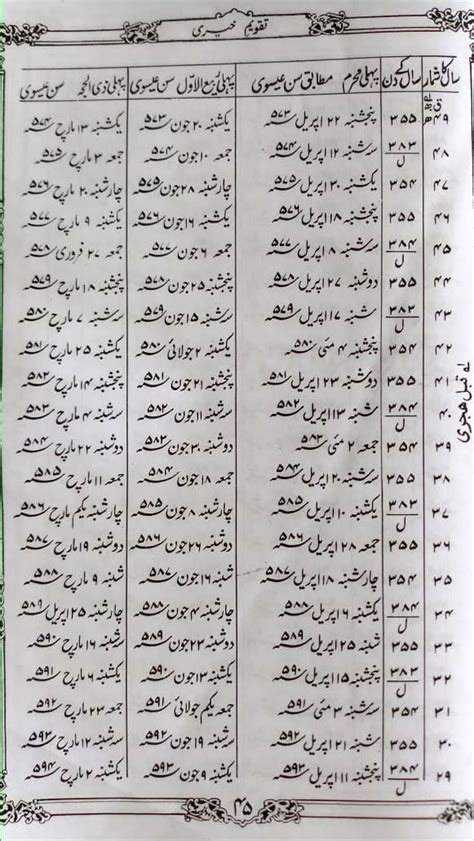 تقویم خیری
سال کا شمار | سال کے دن | پہلی محرم مطابق سن عیسوی | پہلی ربیع الاوّل سن عیسوی | پہلی ذی الحجہ سن عیسوی
۴۹ | ۳۵۵ | پنجشنبہ ۲۲ اپریل ۵۷۳ | یکشنبہ ۲۰ جون ۵۷۳ | یکشنبہ ۱۳ مارچ ۵۷۴
۴۸ | ۳۸۳ ل | سہ شنبہ ۱۲ اپریل ۵۷۴ | جمعہ ۱۰ جون ۵۷۴ | جمعہ ۳ مارچ ۵۷۵
۴۷ | ۳۵۴ | یکشنبہ ۳۰ اپریل ۵۷۵ | چارشنبہ ۲۸ جون ۵۷۵ | چارشنبہ ۲۰ مارچ ۵۷۶
۴۶ | ۳۵۵ | پنجشنبہ ۱۸ اپریل ۵۷۶ | یکشنبہ ۱۶ جون ۵۷۶ | یکشنبہ ۹ مارچ ۵۷۷
۴۵ | ۳۸۴ ل | سہ شنبہ ۱۸ اپریل ۵۷۷ | جمعہ ۶ جون ۵۷۷ | جمعہ ۲۷ فروری ۵۷۸
۴۴ | ۳۵۵ | دوشنبہ ۲۷ اپریل ۵۷۸ | پنجشنبہ ۲۵ جون ۵۷۸ | پنجشنبہ ۱۸ مارچ ۵۷۹
۴۳ | ۳۸۳ ل | شنبہ ۱۷ اپریل ۵۷۹ | سہ شنبہ ۱۵ جون ۵۷۹ | سہ شنبہ ۷ مارچ ۵۸۰
۴۲ | ۳۵۴ | پنجشنبہ ۴ مئی ۵۸۰ | یکشنبہ ۲ جولائی ۵۸۰ | یکشنبہ ۲۵ مارچ ۵۸۱
۴۱ | ۳۵۵ | دوشنبہ ۲۳ اپریل ۵۸۱ | پنجشنبہ ۲۱ جون ۵۸۱ | پنجشنبہ ۱۴ مارچ ۵۸۲
۴۰ | ۳۸۴ ل | شنبہ ۱۳ اپریل ۵۸۲ | سہ شنبہ ۱۱ جون ۵۸۲ | سہ شنبہ ۴ مارچ ۵۸۳
۳۹ | ۳۵۴ | جمعہ ۲ مئی ۵۸۳ | دوشنبہ ۳۰ جون ۵۸۳ | دوشنبہ ۲۲ مارچ ۵۸۴
۳۸ | ۳۵۵ | سہ شنبہ ۲۰ اپریل ۵۸۴ | جمعہ ۱۸ جون ۵۸۴ | جمعہ ۱۱ مارچ ۵۸۵
۳۷ | ۳۸۳ ل | یکشنبہ ۱۰ اپریل ۵۸۵ | چارشنبہ ۸ جون ۵۸۵ | چارشنبہ یکم مارچ ۵۸۶
۳۶ | ۳۵۵ | جمعہ ۲۸ اپریل ۵۸۶ | دوشنبہ ۲۶ جون ۵۸۶ | دوشنبہ ۱۹ مارچ ۵۸۷
۳۵ | ۳۵۴ | چارشنبہ ۱۸ اپریل ۵۸۷ | شنبہ ۱۶ جون ۵۸۷ | شنبہ ۹ مارچ ۵۸۸
۳۴ | ۳۸۴ ل | یکشنبہ ۶ اپریل ۵۸۸ | چارشنبہ ۴ جون ۵۸۸ | چارشنبہ ۲۵ اپریل ۵۸۹
۳۳ | ۳۵۵ | شنبہ ۲۵ اپریل ۵۸۹ | دوشنبہ ۲۳ جون ۵۸۹ | سہ شنبہ ۱۶ مارچ ۵۹۰
۳۲ | ۳۸۳ ل | پنجشنبہ ۱۵ اپریل ۵۹۰ | یکشنبہ ۱۳ جون ۵۹۰ | یکشنبہ ۶ مارچ ۵۹۱
۳۱ | ۳۵۴ | سہ شنبہ ۳ مئی ۵۹۱ | جمعہ یکم جولائی ۵۹۱ | جمعہ ۲۳ مارچ ۵۹۲
۳۰ | ۳۵۵ | شنبہ ۲۱ اپریل ۵۹۲ | سہ شنبہ ۱۹ جون ۵۹۲ | سہ شنبہ ۱۲ مارچ ۵۹۳
۲۹ | ۳۸۴ ل | پنجشنبہ ۱۱ اپریل ۵۹۳ | یکشنبہ ۹ جون ۵۹۳ | یکشنبہ ۲ مارچ ۵۹۴
لے قبل ھجری
۴۵